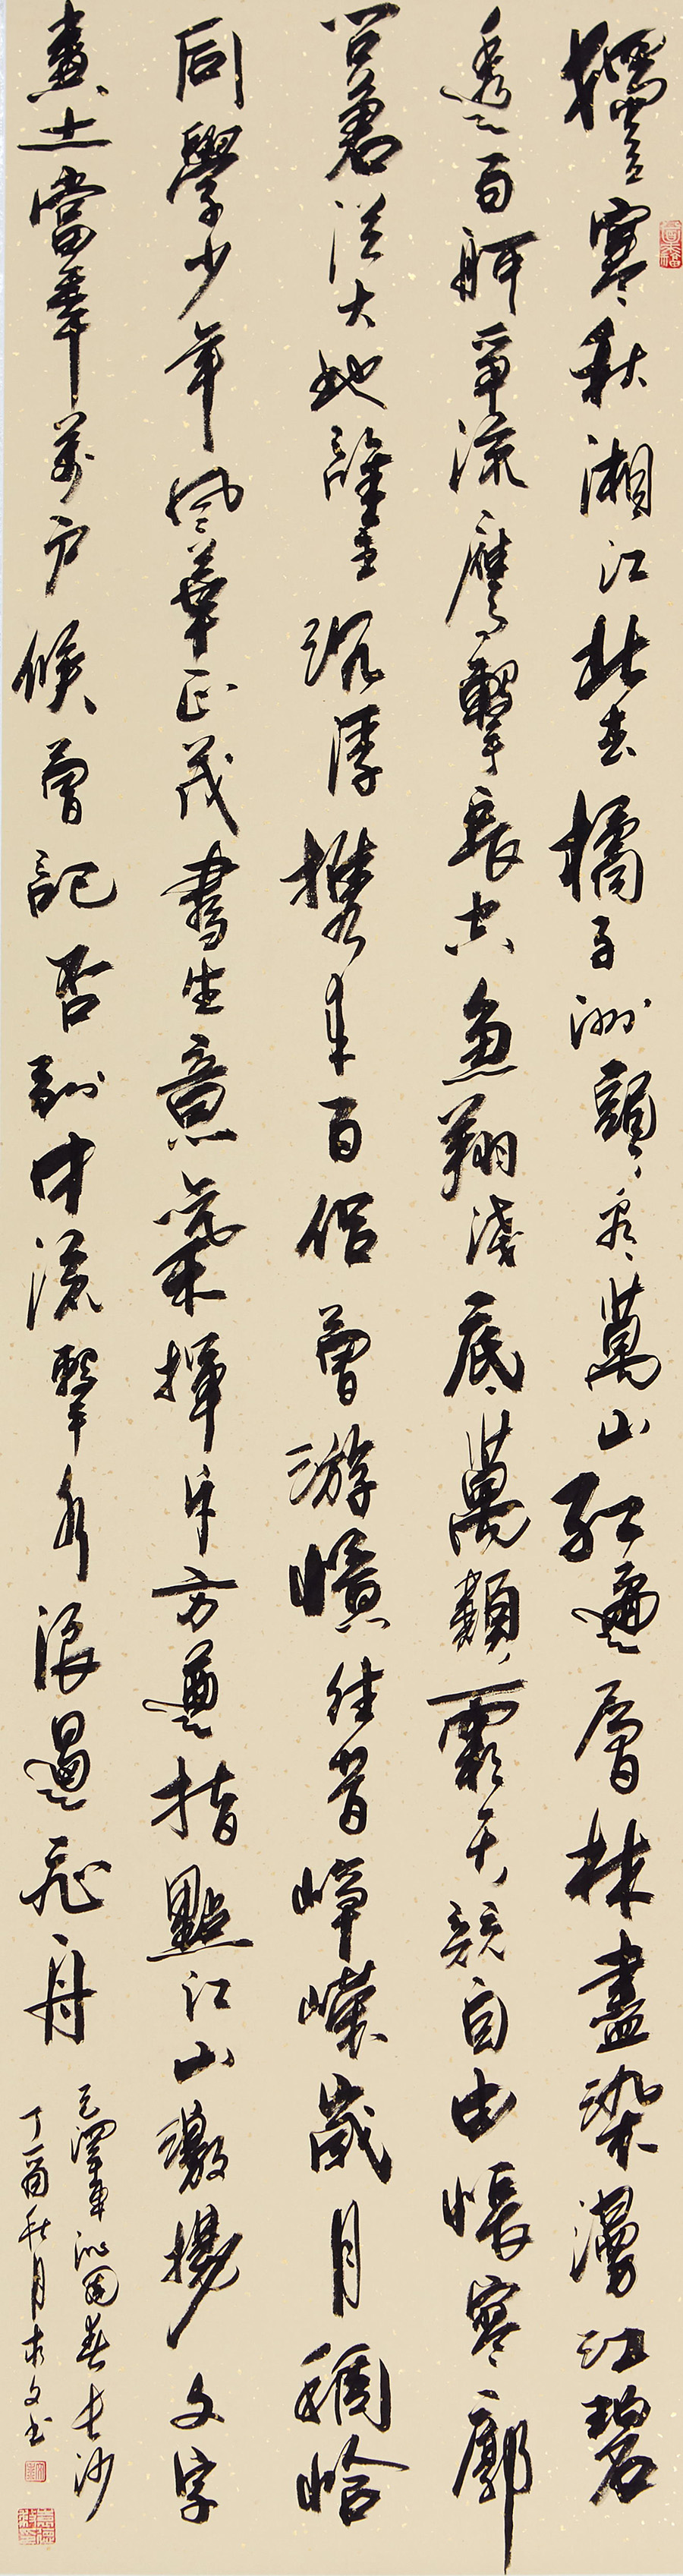 獨立寒秋湘江北去橘子洲頭看萬山紅遍層林盡染漫江碧
透百舸爭流鷹擊長空魚翔淺底萬類霜天競自由悵寥廓
問蒼茫大地誰主沉浮攜來百侶曾游憶往昔崢嶸歲月稠恰
同學少年風華正茂書生意氣揮斥方遒指點江山激揚文字
糞土當年萬戶侯曾記否到中流擊水浪遏飛舟
毛澤東沁園春長沙
丁酉秋月